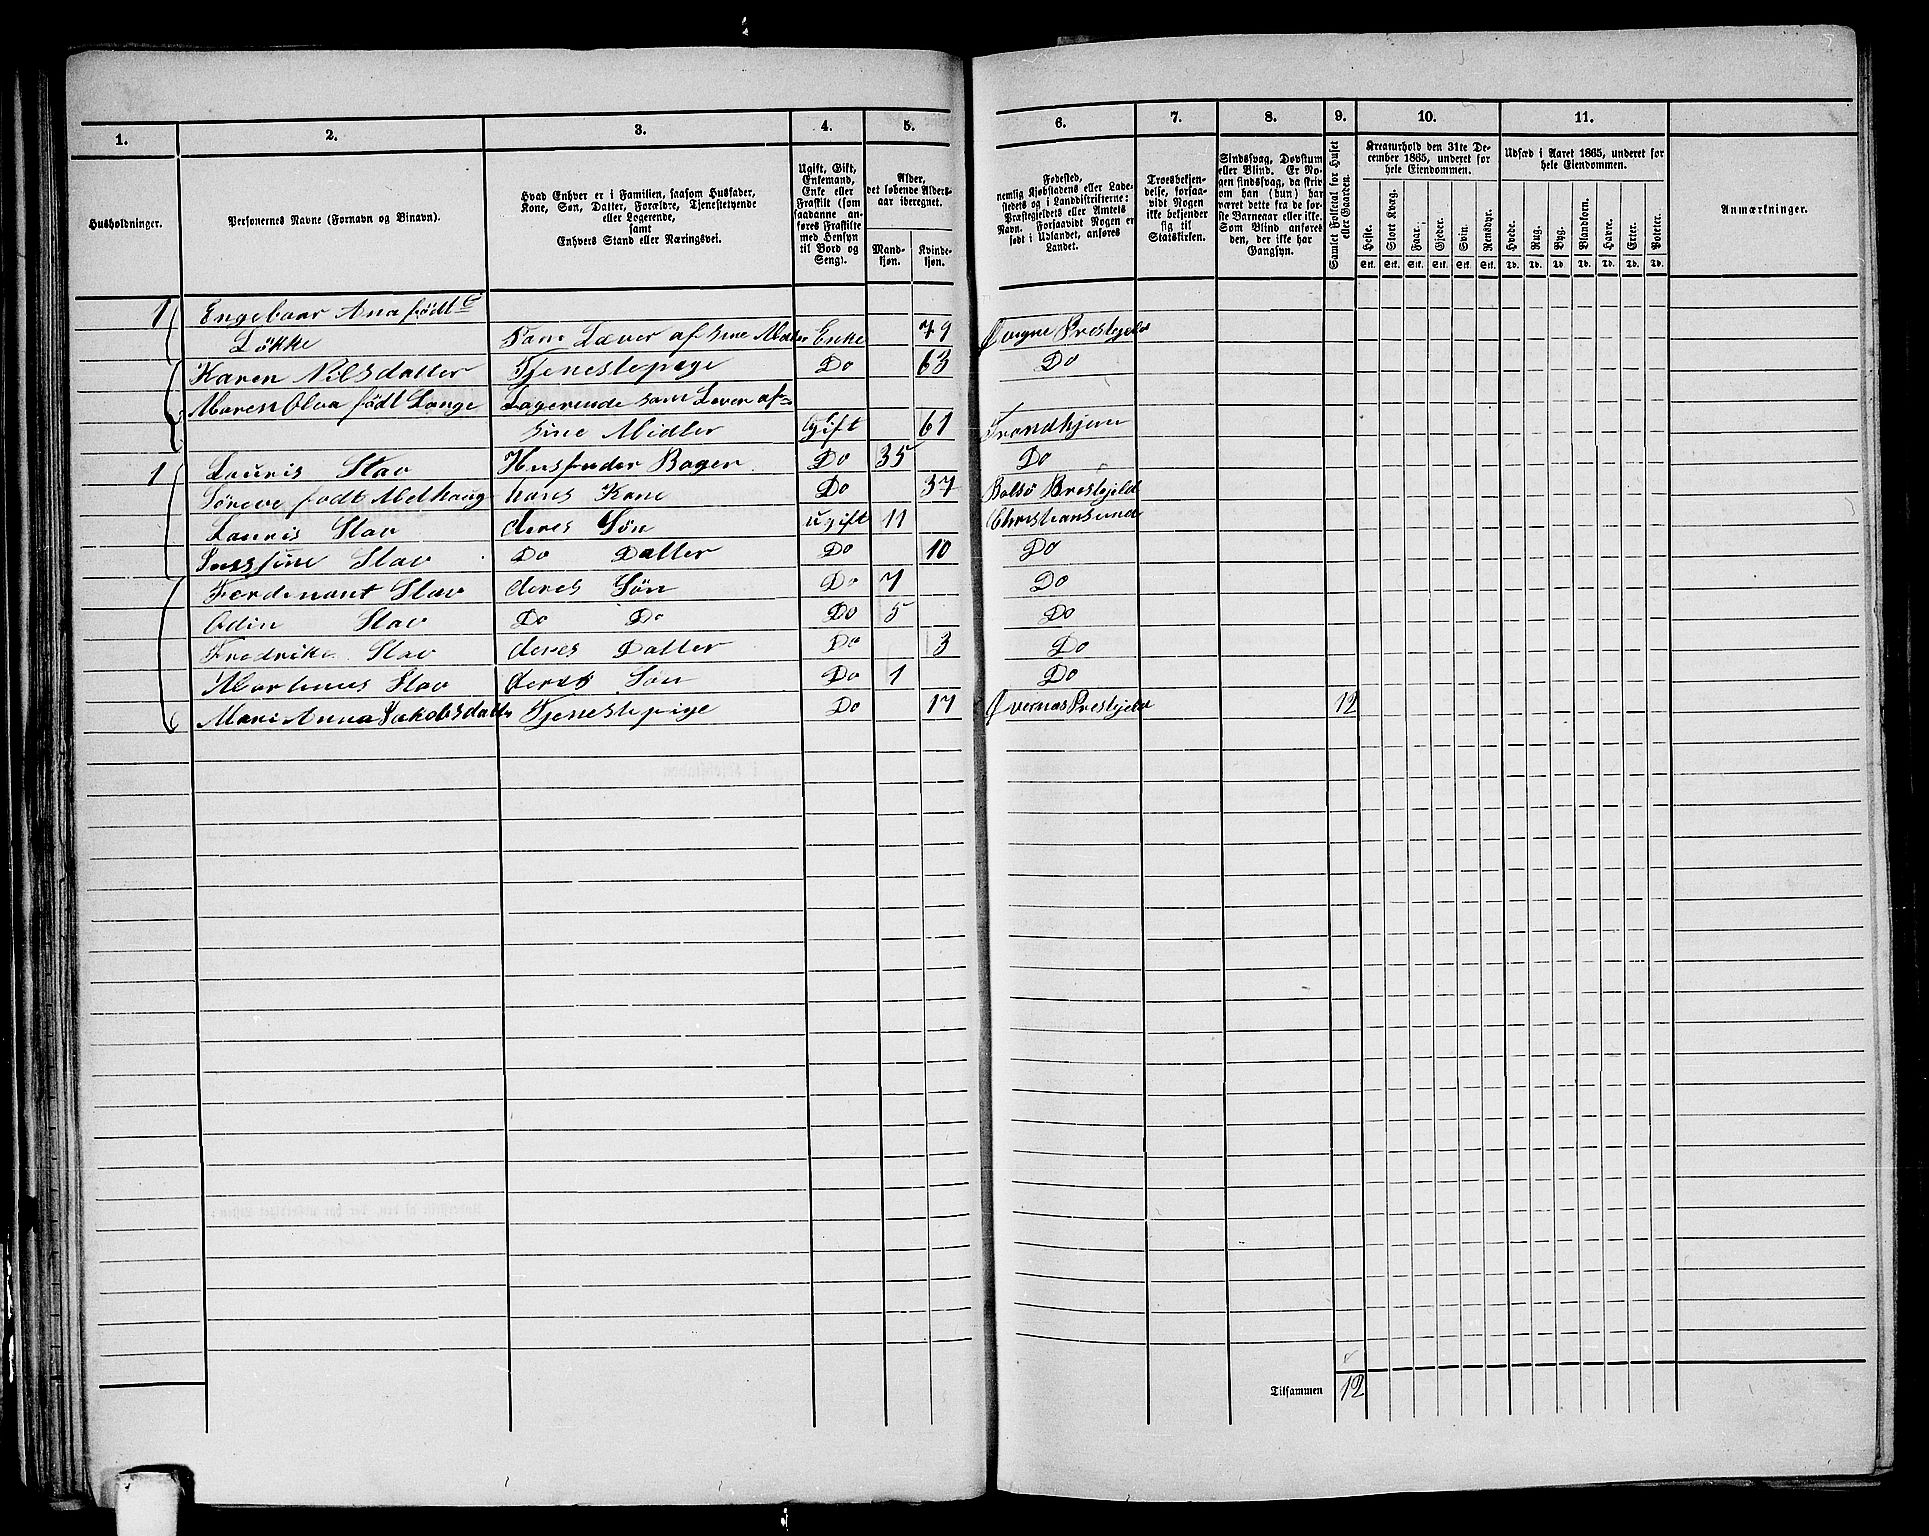 1. 2. 3. 4. 5. 6. 7. 8. 9. 10. 11.
Husholdninger.
Personernes Navne (Fornavn og Binavn).
Hvad Enhver er i Familien, saasom Husfader,
Kone, Søn, Datter, Forældre, Tjenestetyende
eller Logerende,
samt
Enhvers Stand eller Næringsvei.
Ugift, Gift,
Enkemand,
Enke eller
Fraskilt (som
saadanne an-
føres Fraskilte
med Hensyn
til Bord og
Seng).
Alder,
det løbende Alders-
aar iberegnet.
Mand-
kjøn.
Kvinde-
kjøn.
Fødested,
nemlig Kjøbstadens eller Lade-
stedets og i Landdistrikterne:
Præstegjeldets eller Amtets
Navn. Forsaavidt Nogen er
født i Udlandet, anføres
Landet.
Troesbekjen-
delse, forsaa-
vidt Nogen
ikke bekjender
sig til
Statskirken.
Sindssvag, Døvstum
eller Blind. Er No-
gen sindssvag, da skriv
om han (hun) har
været dette fra de før-
ste Barneaar eller ikke.
Som Blind anføres
den, der ikke har
Gangsyn.
Samlet Folketal for Huset
eller Gaarden.
Kreaturhold den 31te De-
cember 1865, underet for
hele Eiendommen.
Heste. Stort Kvæg. Faar. Gjeder. Svin. Rensdyr.
Stk. Stk. Stk. Stk. Stk. Stk.
Udsæd i Aaret 1865, underet for
hele Eiendommen.
Hvede. Rug. Byg. Blandkorn. Havre. Erter. Poteter.
Td. Td. Td. Td. Td. Td. Td.
Anmærkninger.
1 Engebaar Ana født
Løkke Som Læver af sine Midler Enke 79 Prestejeld
Karen Nilsdatter Tjenestepige Do 63 Do
Maren Olva født Lange Logerende som Lever af
sine Midler Gift 61 Trondhjem
1 Lauris Stav Husfader Bager Do 35 Do
født Melhaug hans Kone Do 37 Bolsø Prestejeld
Lauris Stav deres Søn ugift 11 Christiansund
Stav Do Datter Do 10 Do
Ferdenant Stav deres Søn Do 7 Do
Odin Stav Do Do Do 5 Do
Fredrike Stav deres Datter Do 3 Do
Martinus Stav deres Søn Do 1 Do
Mari Anna Jakobsdatter Tjenestepige Do 17 Øvernæs Prestejeld 12
Tilsammen 12